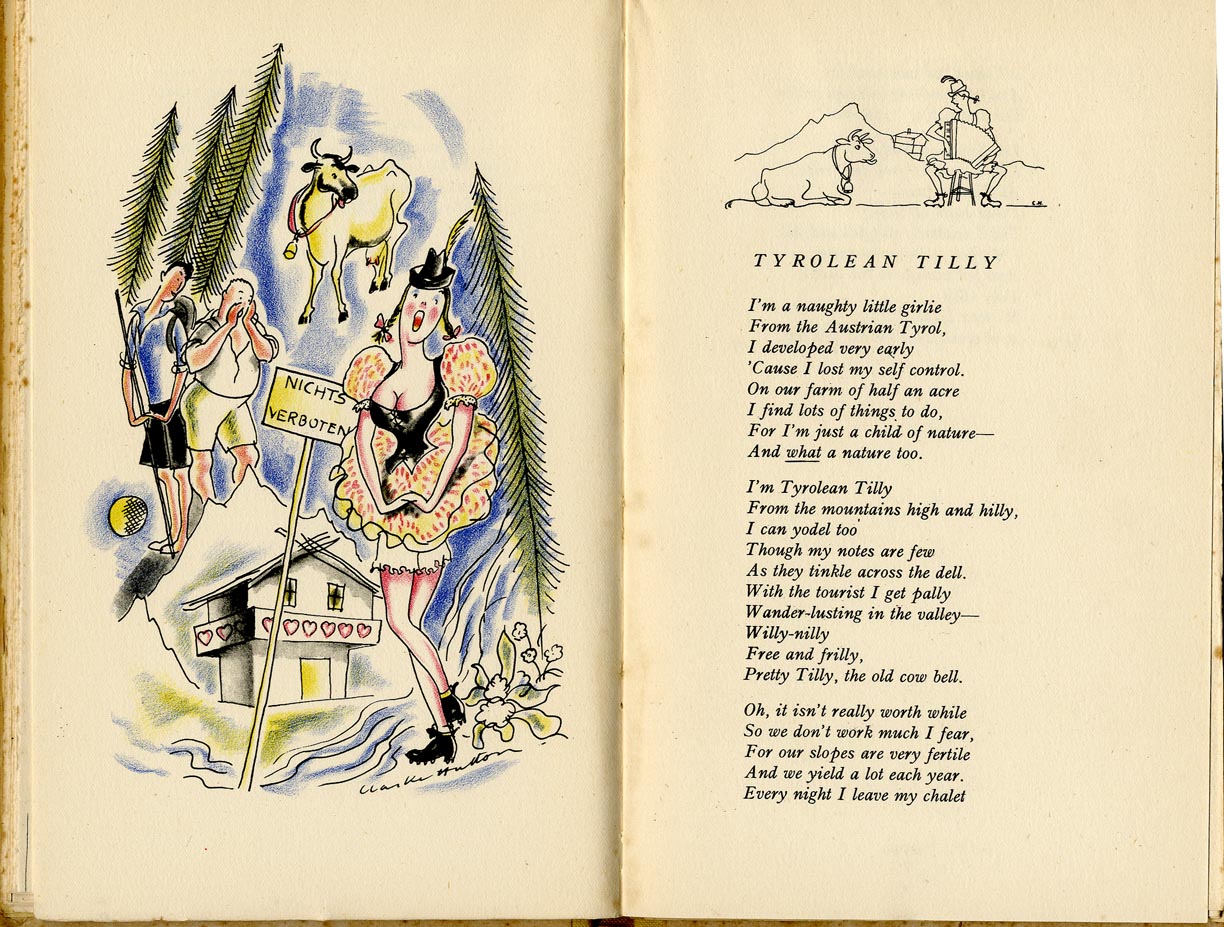 NICHTS
VERBOTEN
Clarke Hutton
C H
TYROLEAN TILLY
I'm a naughty little girlie
From the Austrian Tyrol,
I developed very early
'Cause I lost my self control.
On our farm of half an acre
I find lots of things to do,
For I'm just a child of nature—
And what a nature too.
I'm Tyrolean Tilly
From the mountains high and hilly,
I can yodel too
Though my notes are few
As they tinkle across the dell.
With the tourist I get pally
Wander-lusting in the valley—
Willy-nilly
Free and frilly,
Pretty Tilly, the old cow bell.
Oh, it isn't really worth while
So we don't work much I fear,
For our slopes are very fertile
And we yield a lot each year.
Every night I leave my chalet